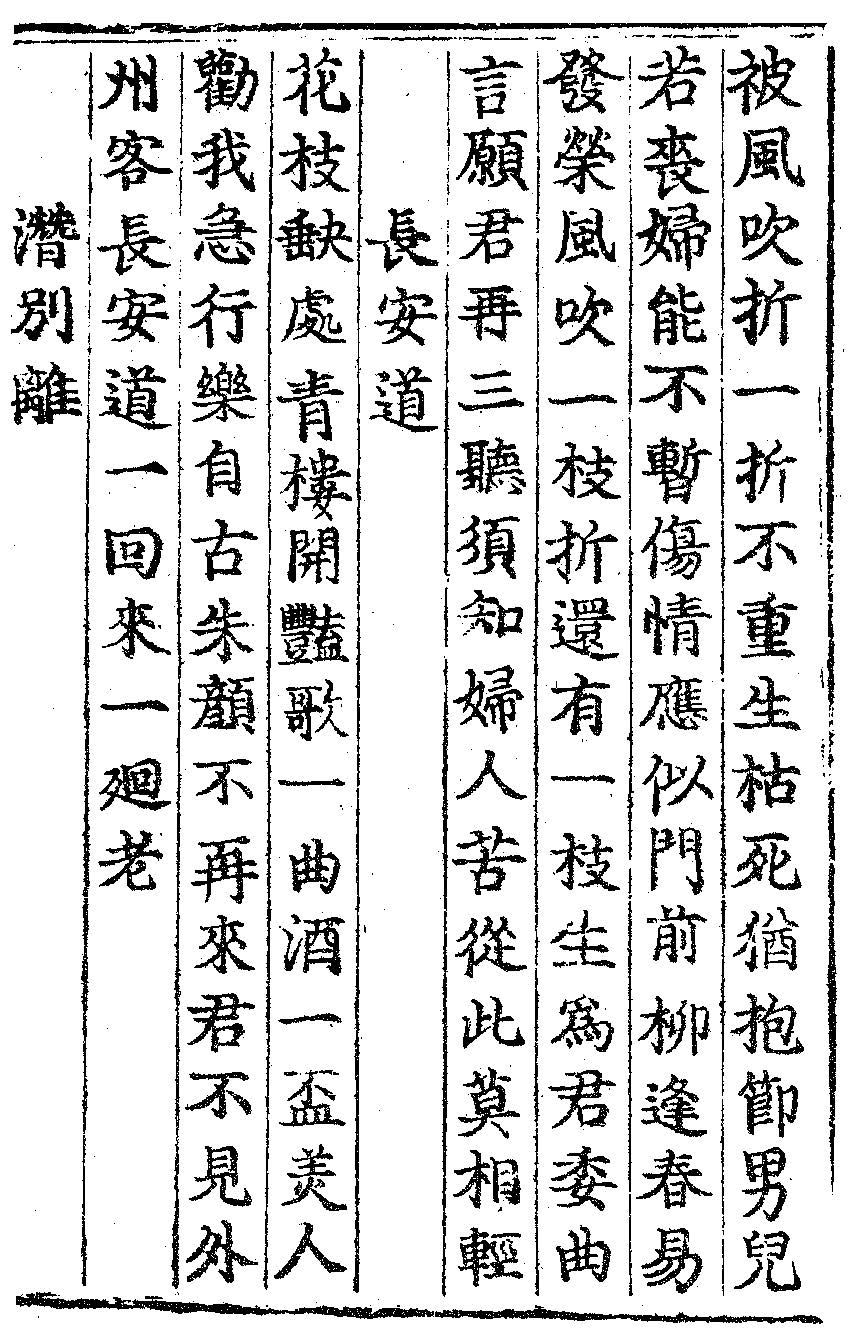 被風吹折一折不重生枯死猶抱節男兒
若喪婦能不暫傷情應似門前柳逢春易
發榮風吹一枝折還有一枝生為君委曲
言願君再三聽須知婦人苦從此莫相輕
長安道
花枝缺處青樓開豔歌一曲酒一盃美人
勸我急行樂自古朱顏不再來君不見外
州客長安道一回來一廻老
潛別離